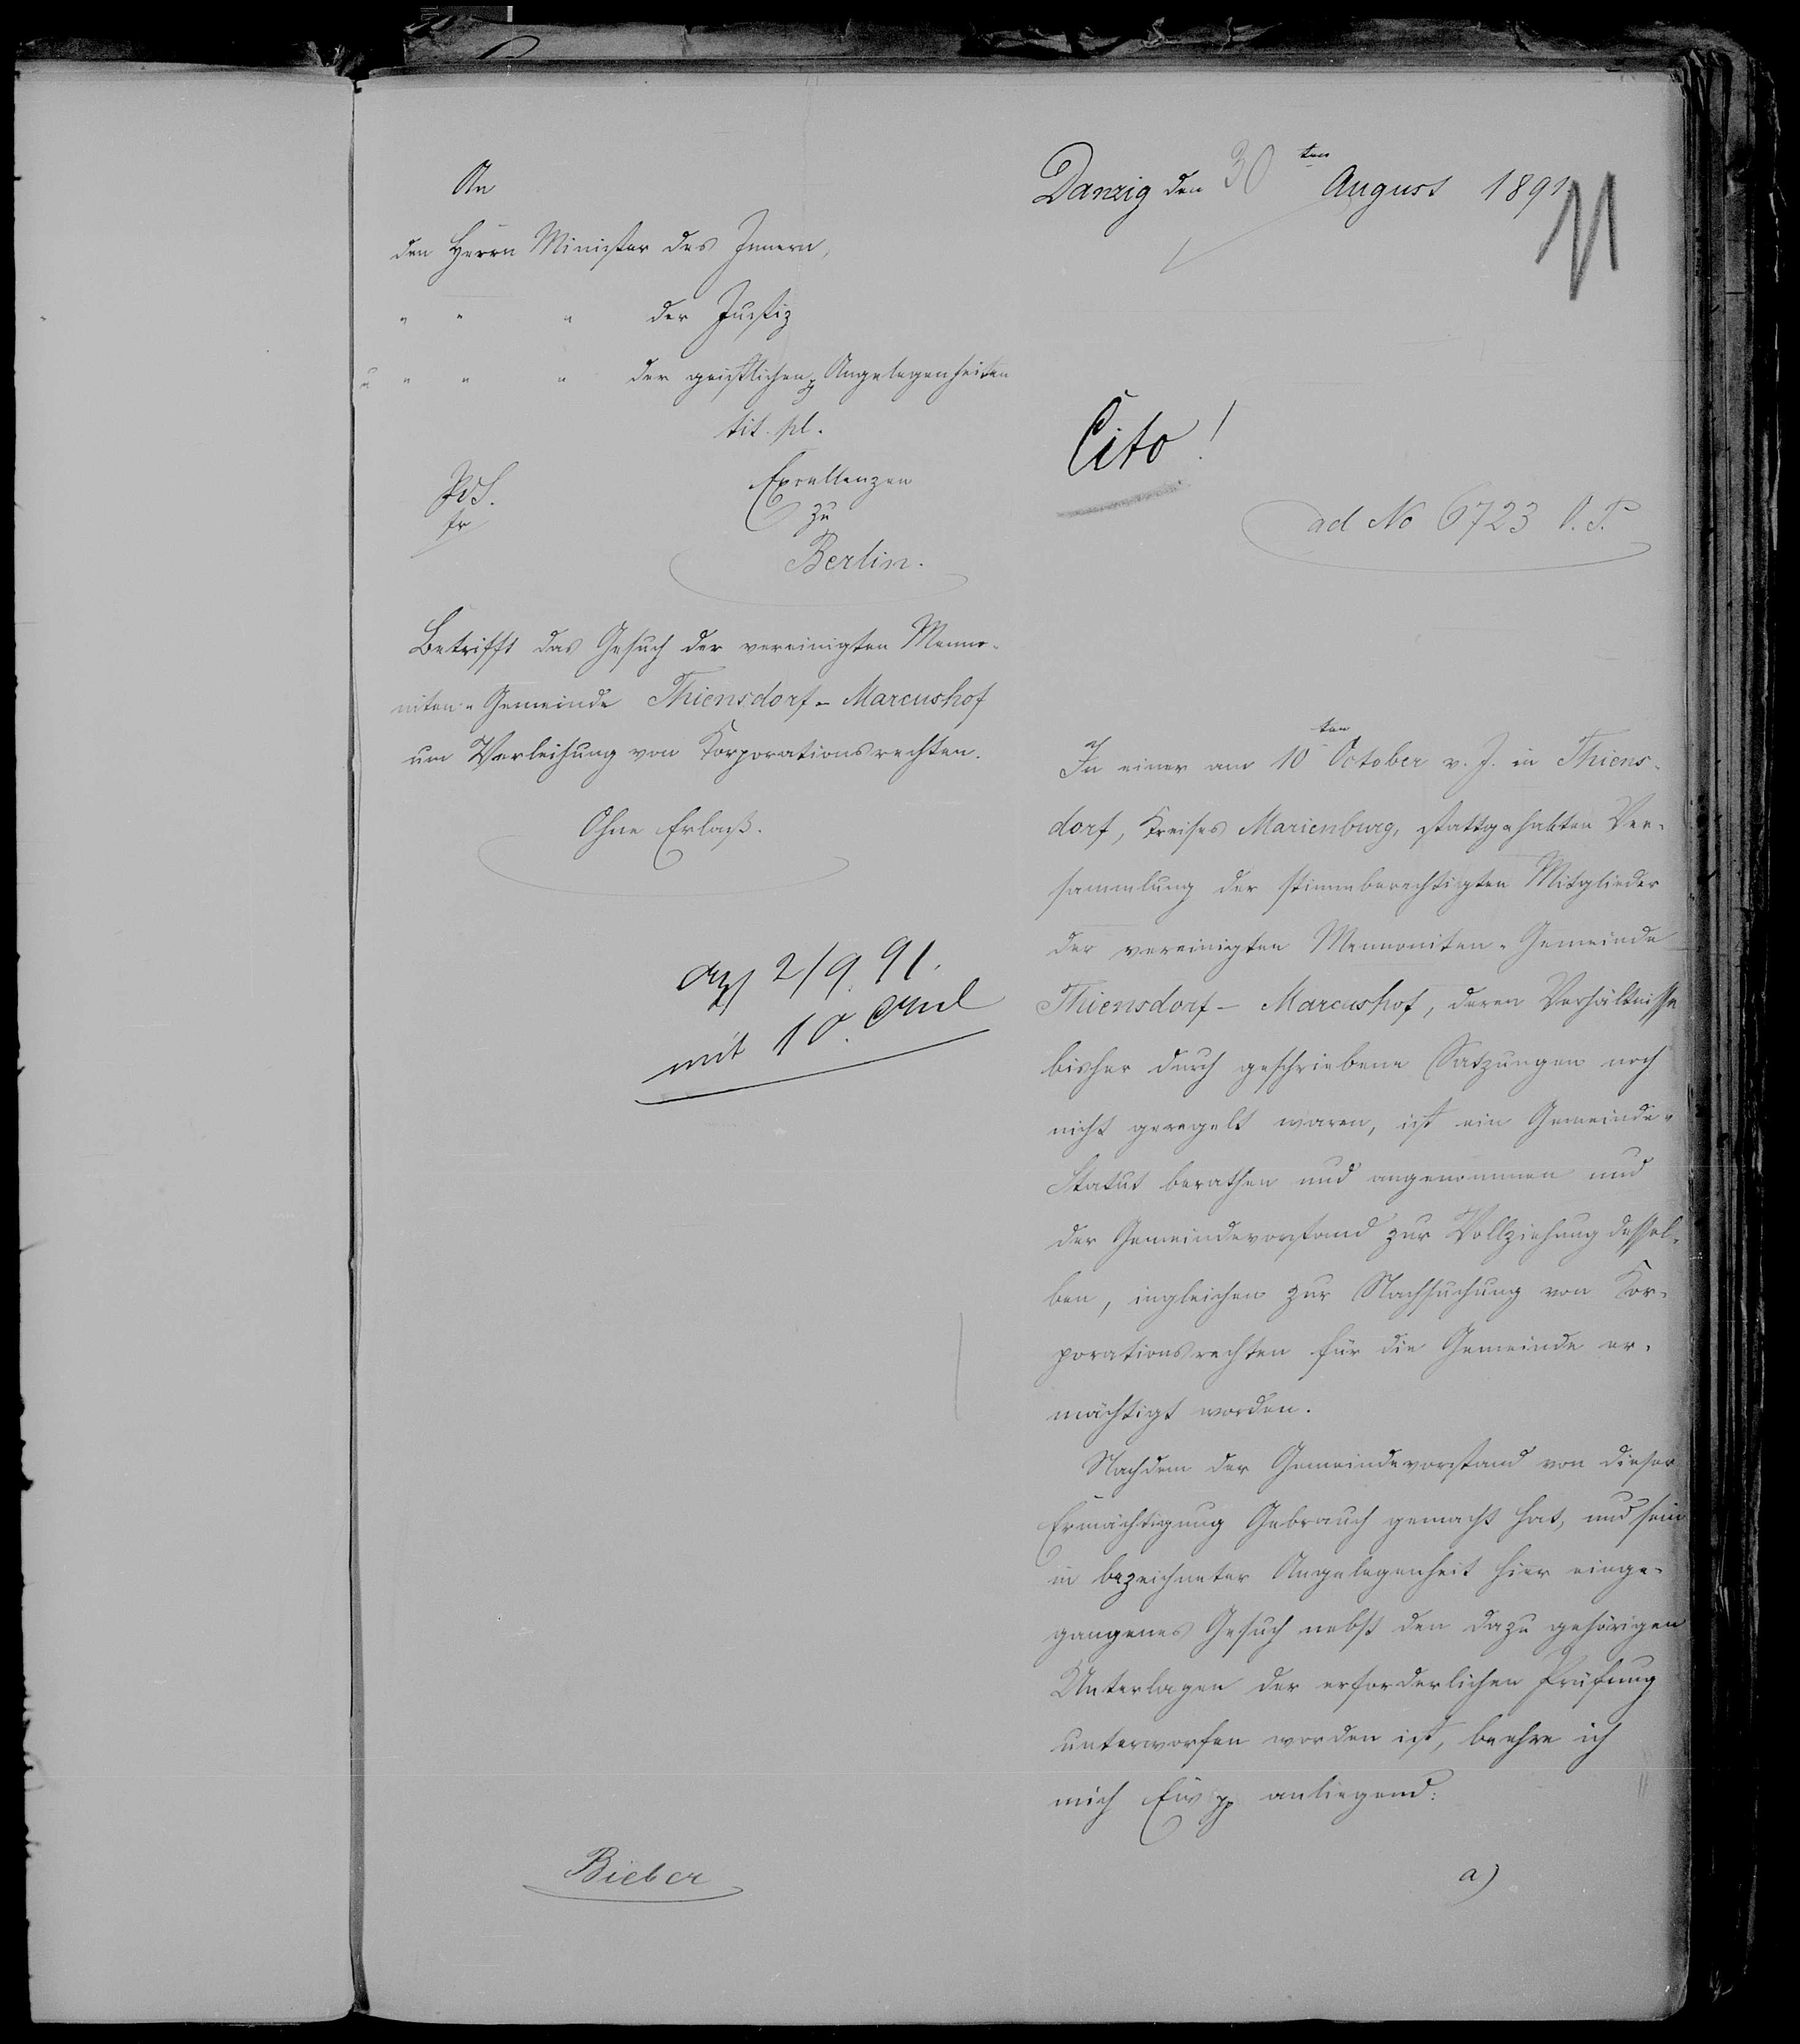 An
den Herrn Minister des Innern,
" " " der Justiz
u " " " der geistlichen pp Angelegenheiten
tit. pl.
Excellenzen
zu
Berlin.
Betrifft das Gesuch der vereinigten Menno-
niten-Gemeinde Thiensdorf-Marcushof
um Verleihung von Korporationsrechten.
Ohne Erlaß.
2/9. 91.
mit 10.
Bieber
Danzig den 30ten August 1891
Cito!
ad No 6723 O. P.
In einer am 10ten October v. J. in Thiens-
dorf, Kreises Marienburg, stattgehabten Ver-
sammlung der stimmberechtigten Mitglieder
der vereinigten Mennoniten-Gemeinde
Thiensdorf-Marcushof, deren Verhältnisse
bisher durch geschriebene Satzungen noch
nicht geregelt waren, ist ein Gemeinde-
Statut berathen und angenommen und
der Gemeindevorstand zur Vollziehung dessel-
ben, ingleichen zur Nachsuchung von Kor-
porationsrechten für die Gemeinde er-
mächtigt worden.
Nachdem der Gemeindevorstand von dieser
Ermächtigung Gebrauch gemacht hat, und sein
in bezeichneter Angelegenheit hier einge-
gangenes Gesuch nebst den dazu gehörigen
Unterlagen der erforderlichen Prüfung
unterworfen worden ist, beehre ich
mich Ew pp anliegend:
a)